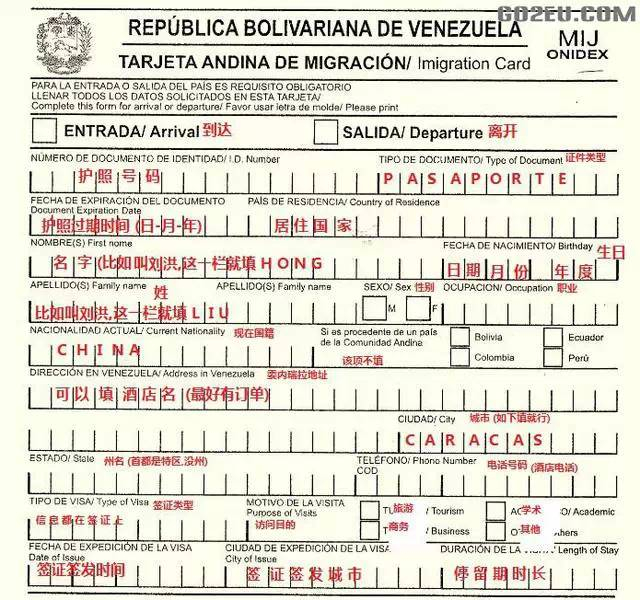 GO2EU.COM
REPÚBLICA BOLIVARIANA DE VENEZUELA
MIJ
ONIDEX
TARJETA ANDINA DE MIGRACIÓN/ Imigration Card
PARA LA ENTRADA O SALIDA DEL PAÍS ES REQUISITO OBLIGATORIO
LLENAR TODOS LOS DATOS SOLICITADOS EN ESTA TARJETA/
Complete this form for arrival or departure/ Favor usar letra de molde/ Please print
ENTRADA/ Arrival 到达 SALIDA/ Departure 离开
NÚMERO DE DOCUMENTO DE IDENTIDAD/ I.D. Number TIPO DE DOCUMENTO/ Type of Document 证件类型
护照号码 PASAPORTE
FECHA DE EXPIRACIÓN DEL DOCUMENTO PAÍS DE RESIDENCIA/ Country of Residence
Document Expiration Date
护照过期时间 (日-月-年) 居住国家
NOMBRE(S) First name FECHA DE NACIMIENTO/ Birthday 生日
名字(比如叫刘洪,这一栏就填HONG 日期月份 年度
APELLIDO(S) Family name 姓 APELLIDO(S) Family name SEXO/ Sex 性别 OCUPACION/ Occupation 职业
比如叫刘洪,这一栏就填LIU M F
NACIONALIDAD ACTUAL/ Current Nationality 现在国籍 Si es procedente de un país
de la Comunidad Andina Bolivia Ecuador
CHINA 该项不填 Colombia Perú
DIRECCIÓN EN VENEZUELA/ Address in Venezuela 委内瑞拉地址
可以填酒店名(最好有订单)
CIUDAD/ City 城市 (如下填就行)
CARACAS
ESTADO/ State 州名 (首都是特区,没州) TELÉFONO/ Phone Number 电话号码 (酒店电话)
COD
TIPO DE VISA/ Type of Visa 签证类型 MOTIVO DE LA VISITA
Purpose of Visits
信息都在签证上 访问目的
旅游 / Tourism 学术 O/ Academic
商务 / Business 其他 hers
FECHA DE EXPEDICIÓN DE LA VISA CIUDAD DE EXPEDICIÓN DE LA VISA DURACIÓN DE LA / Length of Stay
Date of Issue City of Issue
签证签发时间 签证签发城市 停留期时长